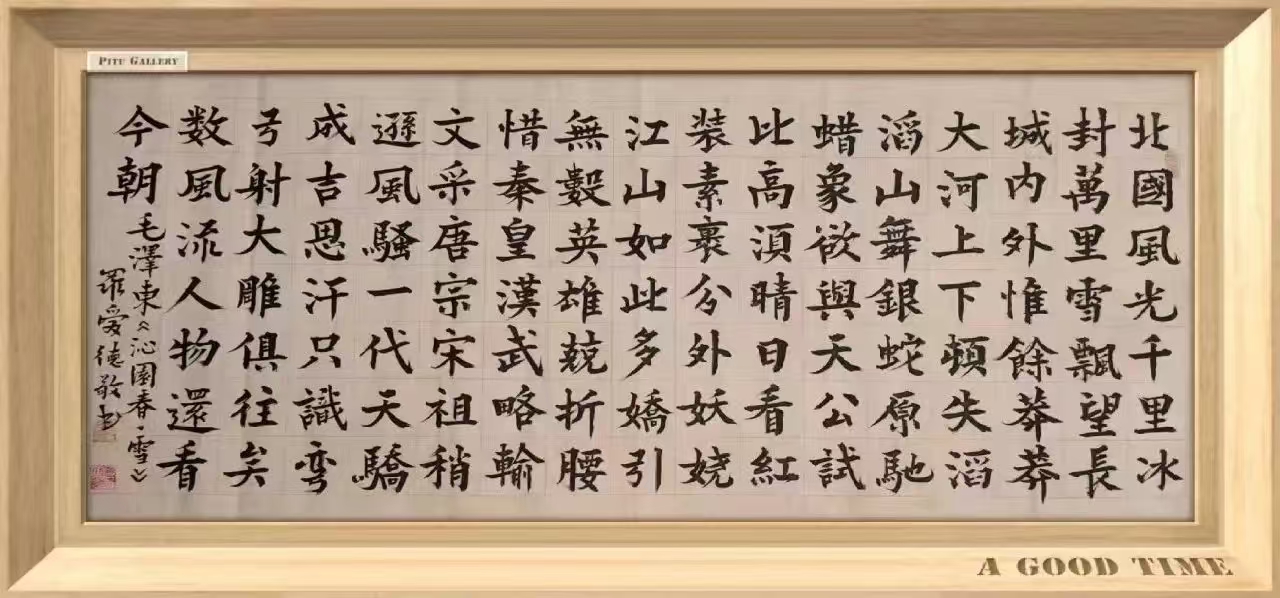 PITU GALLERY
北國風光千里冰
封萬里雪飄望長
城内外惟餘莽莽
大河上下頓失滔
滔山舞銀蛇原馳
蜡象欲與天公試
比高須晴日看紅
装素裹分外妖娆
江山如此多嬌引
無數英雄競折腰
惜秦皇漢武略輸
文采唐宗宋祖稍
遜風騷一代天驕
成吉思汗只識弯
弓射大雕俱往矣
数風流人物還看
今朝
毛澤東《沁園春·雪》
羅受德敬书
A GOOD TIME